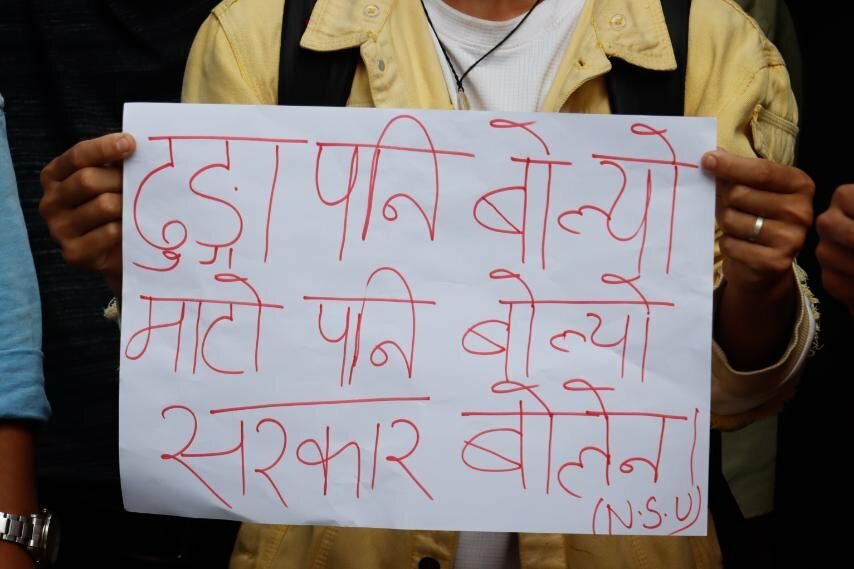 ढुङ्गा पनि बोल्यो
माटो पनि बोल्यो
सरकार बोलेन।
(N.S.U)